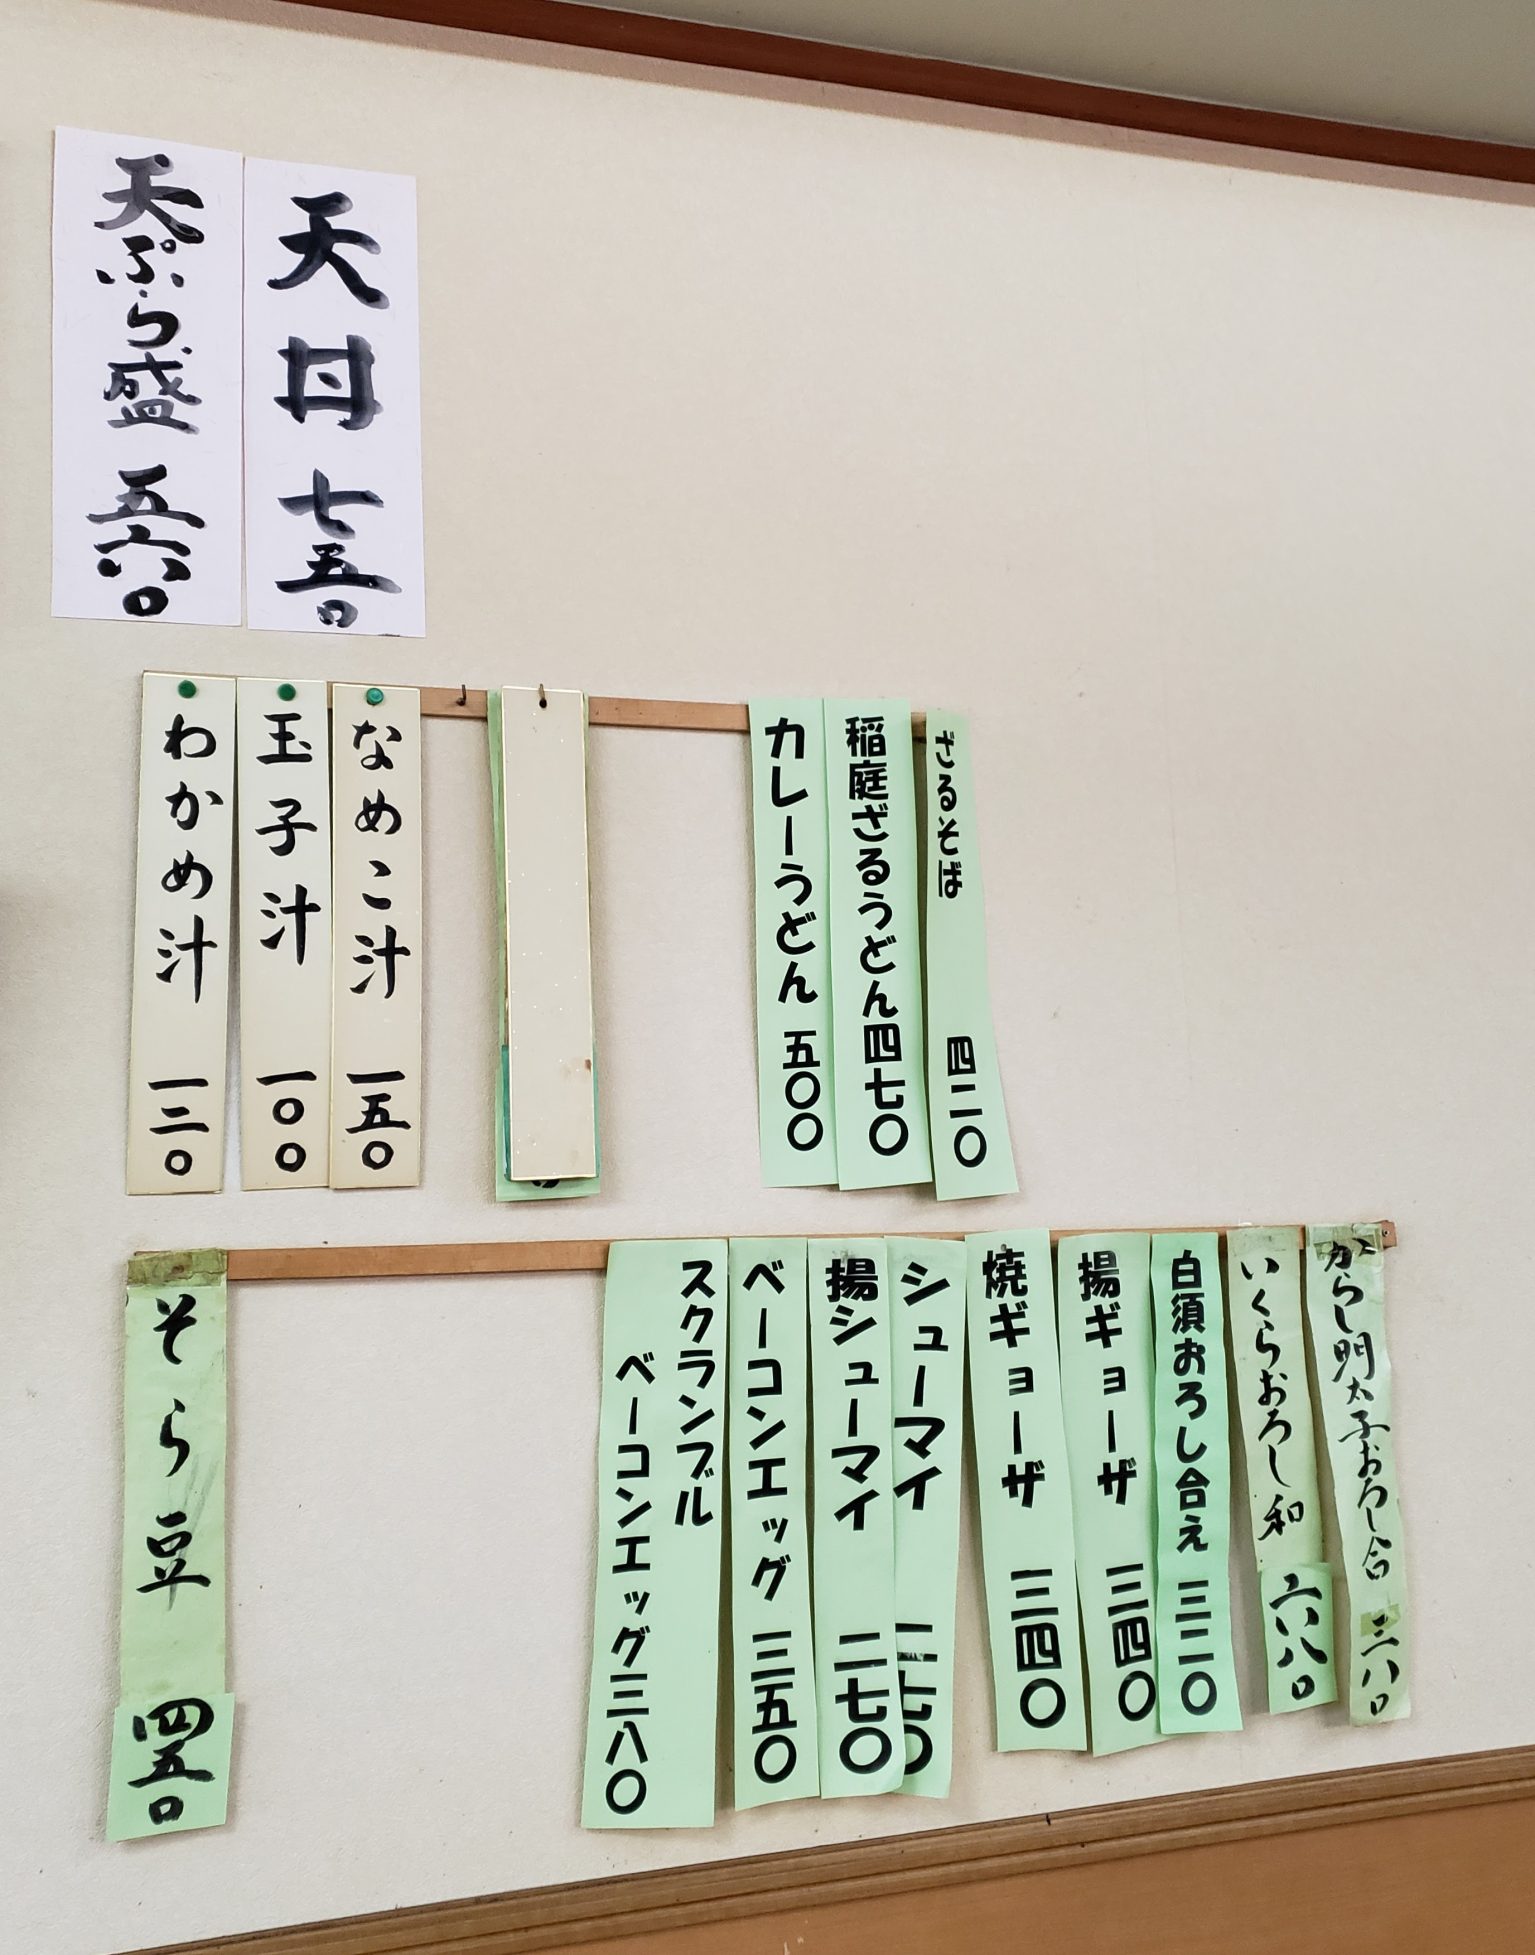 天丼 七五〇
天ぷら盛 五六〇
ざるそば 四二〇
稲庭ざるうどん 四七〇
カレーうどん 五〇〇
なめこ汁 一五〇
玉子汁 一〇〇
わかめ汁 一二〇
からし明太子おろし合 三八〇
いくらおろし和 六八〇
白須おろし合え 三二〇
揚ギョーザ 三四〇
焼ギョーザ 三四〇
シューマイ 二七〇
揚シューマイ 二七〇
ベーコンエッグ 三五〇
スクランブル
ベーコンエッグ 三八〇
そら豆 四五〇